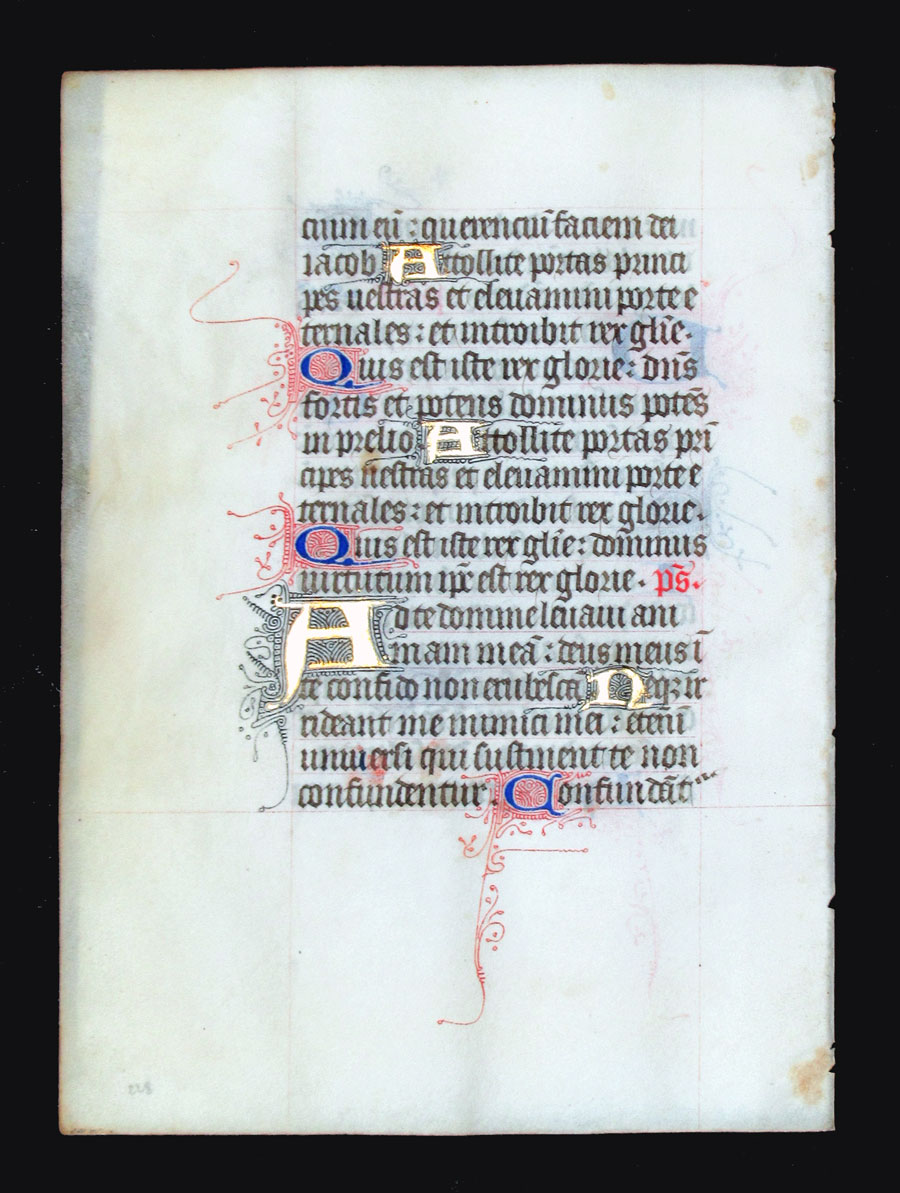 cium eū : querenciū faciem dei
iacob Attollite portas princi
pes uestras et eleuamini porte e
ternales : et introibit rex glīe.
Quis est iste rex glorie : dn̄s
fortis et potens dominus potēs
in prelio Attollite portas pri
cipes uestras et eleuamini porte e
ternales : et introibit rex glorie.
Quis est iste rex glīe : dominus
uirtutum ip̄e est rex glorie . ps̄.
Ad te domine leuaui ani
mam meā : deus meus ī
te confido non erubescā Neqz ir
rideant me inimici mei : etenī
uniuersi qui sustinent te non
confundentur. Confundāt
228